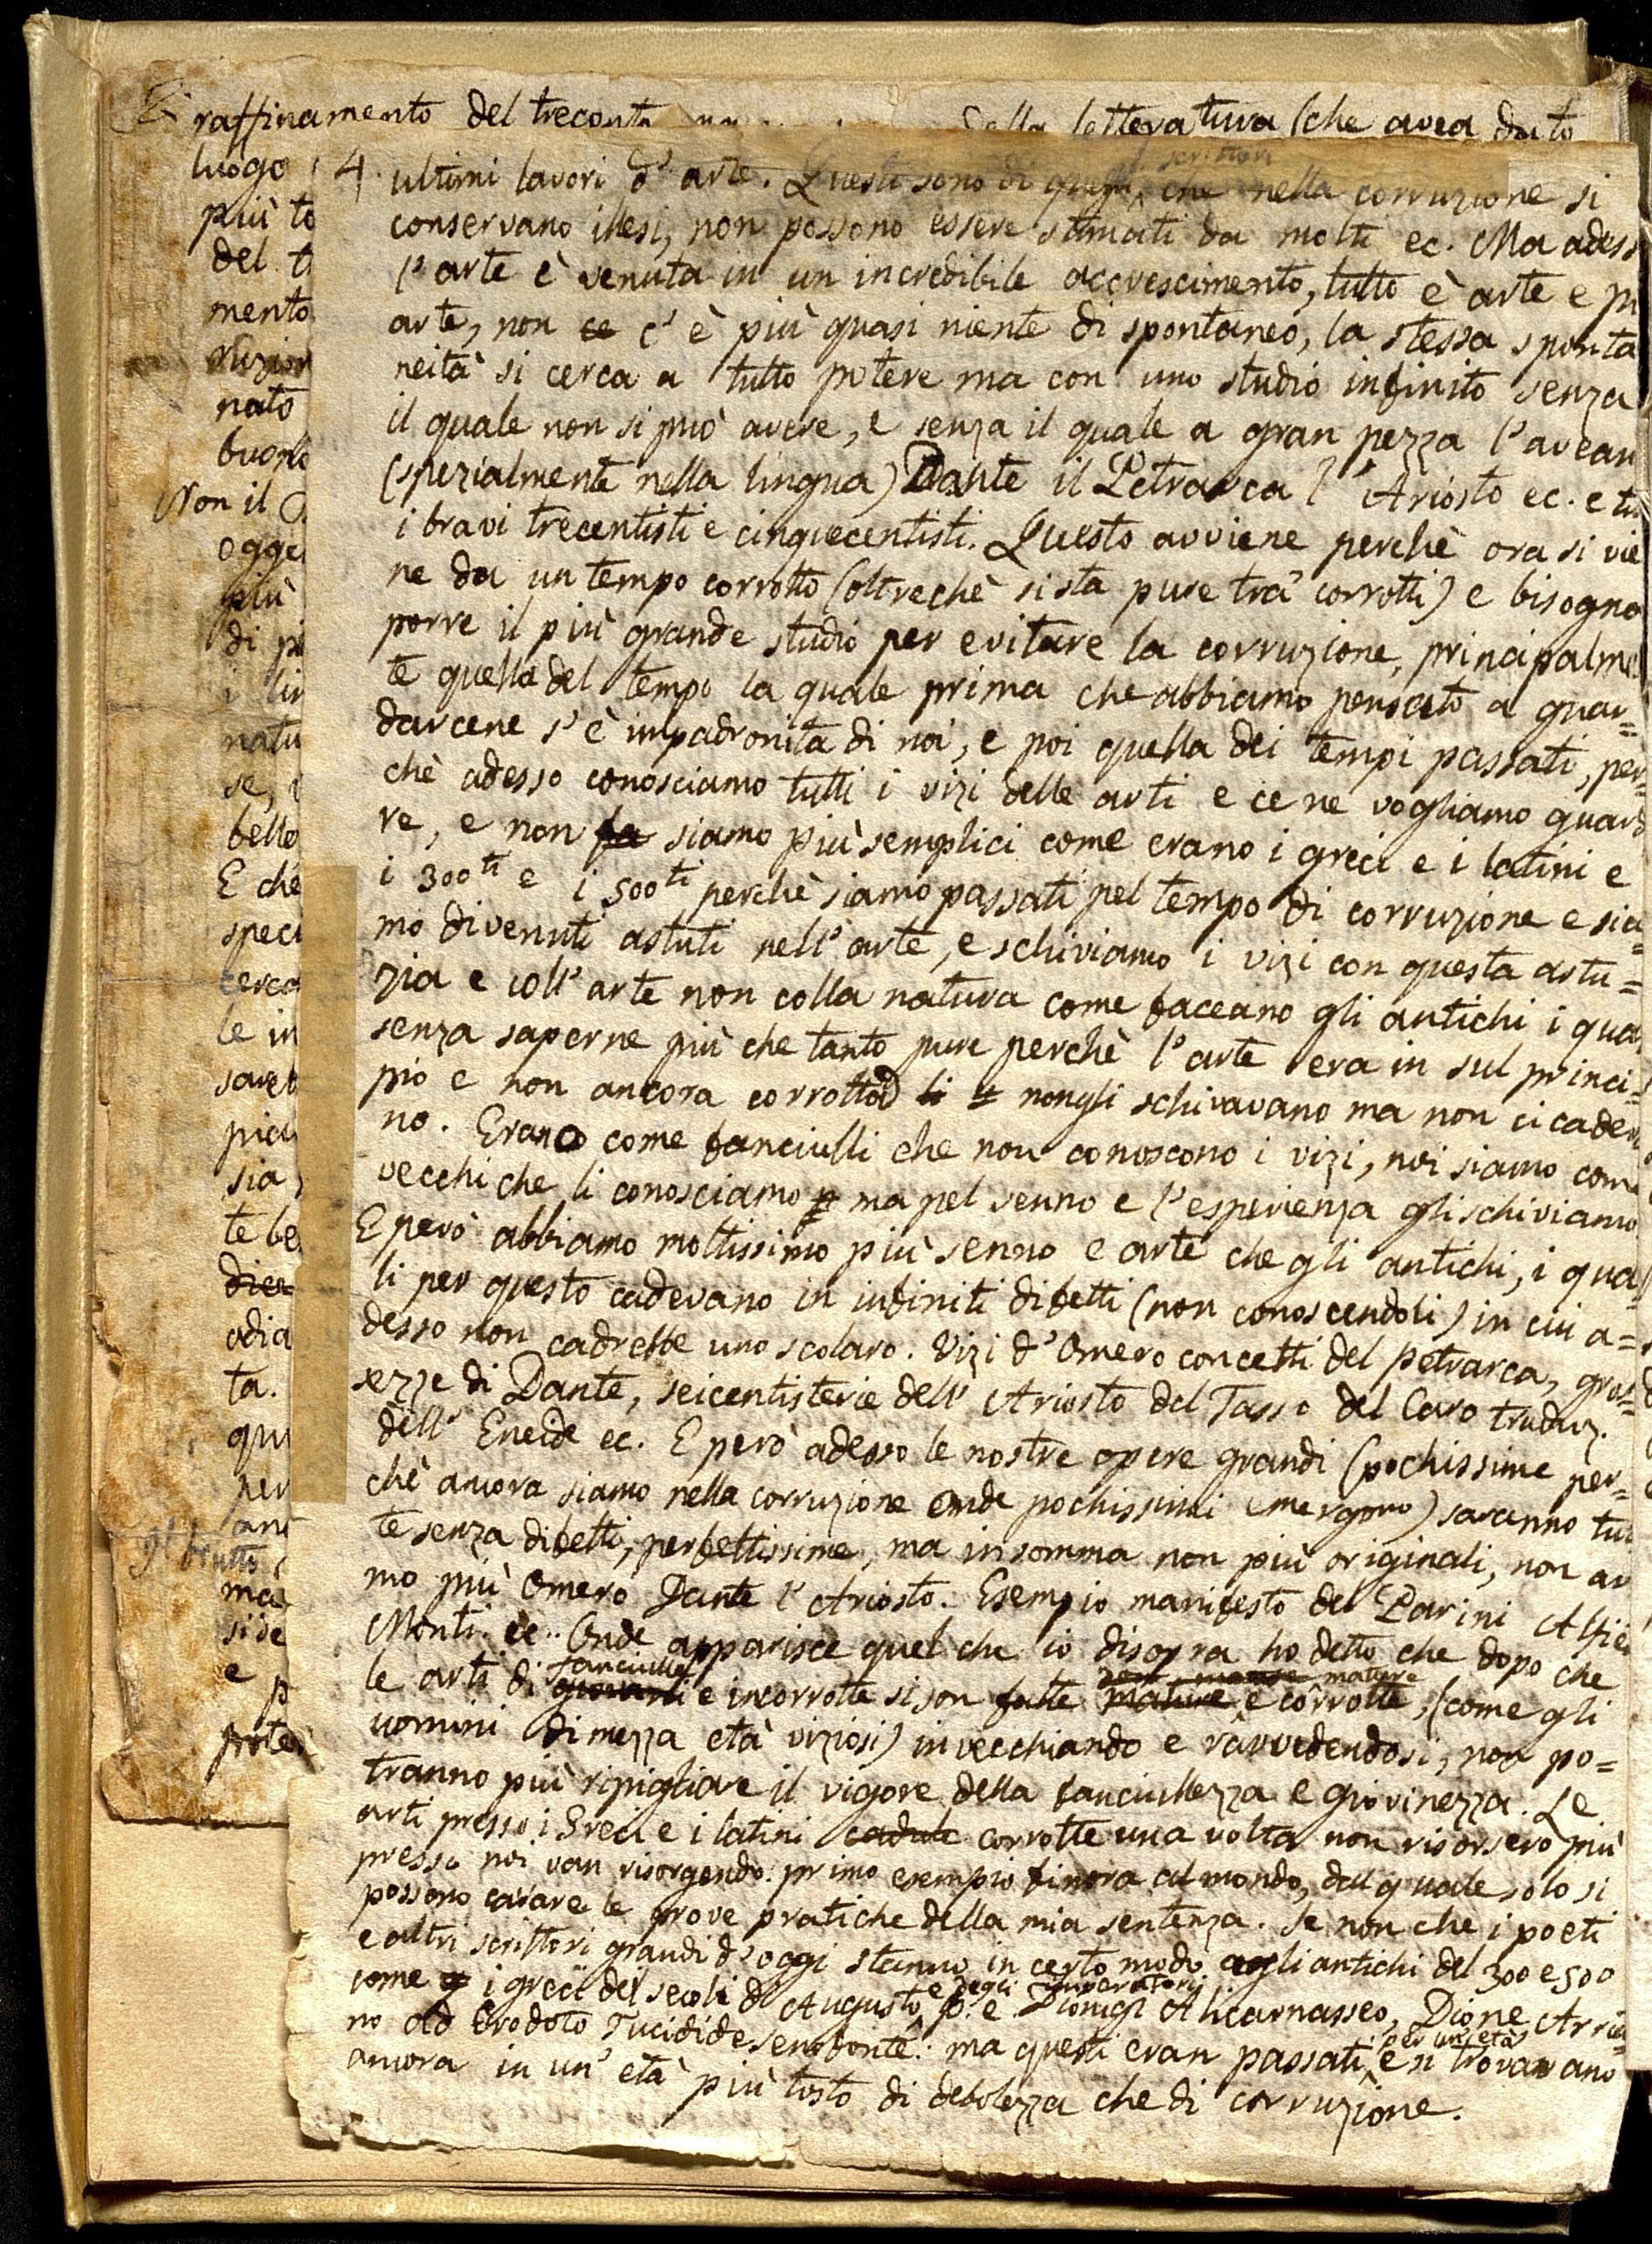 raffinamento del trecento della letteratura (che avea dato
luogo
più to
del t
mento
ruzion
nato
buon
Non il
ogge
più
di pi
i lir
natu
se,
bello
E che
speci
cerca
le in
sareb
piu
sia
te be
odia
ta.
qu
per
anc
Il brutto
ma
si se
e p
poter
4. ultimi lavori d'arte. Questi sono di quegli scrittori che nella corruzione si
conservano illesi, non possono essere stimati da molti ec. Ma adess
l'arte è venuta in un incredibile accrescimento, tutto è arte e pi
arte, non ce c'è più quasi niente di spontaneo, la stessa sponta
neità si cerca a tutto potere ma con uno studio infinito senza
il quale non si può avere, e senza il quale a gran pezza l'avean
(spezialmente nella lingua) Dante il Petrarca l'Ariosto ec. e tu
i bravi trecentisti e cinquecentisti. Questo avviene perchè ora si vie
ne da un tempo corrotto (oltrechè si sta pure tra' corrotti) e bisogna
porre il più grande studio per evitare la corruzione, principalme
te quella del tempo la quale prima che abbiamo pensato a guar=
darcene s'è impadronita di noi, e poi quella dei tempi passati, per=
chè adesso conosciamo tutti i vizi delle arti e ce ne vogliamo guard
re, e non fa siamo più semplici come erano i greci e i latini e
i 300ti e i 500ti perchè siamo passati pel tempo di corruzione e sia=
mo divenuti astuti nell'arte, e schiviamo i vizi con questa astu=
zia e coll'arte non colla natura come faceano gli antichi i qua
senza saperne più che tanto pure perchè l'arte era in sul princi=
pio e non ancora corrotta non gli schivavano ma non ci cadeva
no. Erano come fanciulli che non conoscono i vizi, noi siamo come
vecchi che li conosciamo ma pel senno e l'esperienza gli schiviamo
E però abbiamo moltissimo più senno e arte che gli antichi, i qua=
li per questo cadevano in infiniti difetti (non conoscendoli) in cui a=
desso non cadrebbe uno scolaro. Vizi d'Omero concetti del petrarca, gros=
sezze di Dante, seicentisterie dell'Ariosto del Tasso del Caro traduz.
dell'Eneide ec. E però adesso le nostre opere grandi (pochissime per=
chè ancora siamo nella corruzione onde pochissimi emergono) saranno tut
te senza difetti, perfettissime, ma insomma non più originali, non av
mo più Omero Dante l'Ariosto. Esempio manifesto del Parini Alfie
Monti ec. Onde apparisce quel che io disopra ho detto che dopo che
le arti di fanciulle giovanili e incorrotte si son fatte mature mature e corrotte, (come gli
uomini di mezza età viziosi) invecchiando e ravvedendosi, non po=
tranno più ripigliare il vigore della fanciullezza e giovinezza. Le
arti presso i Greci e i latini cadute corrotte una volta non risorsero più
presso noi van risorgendo: primo esempio finora al mondo, dal quale solo si
possono cavare le prove pratiche della mia sentenza. Se non che i poeti
e altri scrittori grandi d'oggi stanno in certo modo agli antichi del 300 e 500
come i greci dei secoli d'Augusto e degli Imperatori p. e. Dionigi Alicarnasseo, Dione, Arria=
no ad Erodoto Tucidide Senofonte: ma questi eran passati per un'età e si trovavano
ancora in un'età più tosto di debolezza che di corruzione.